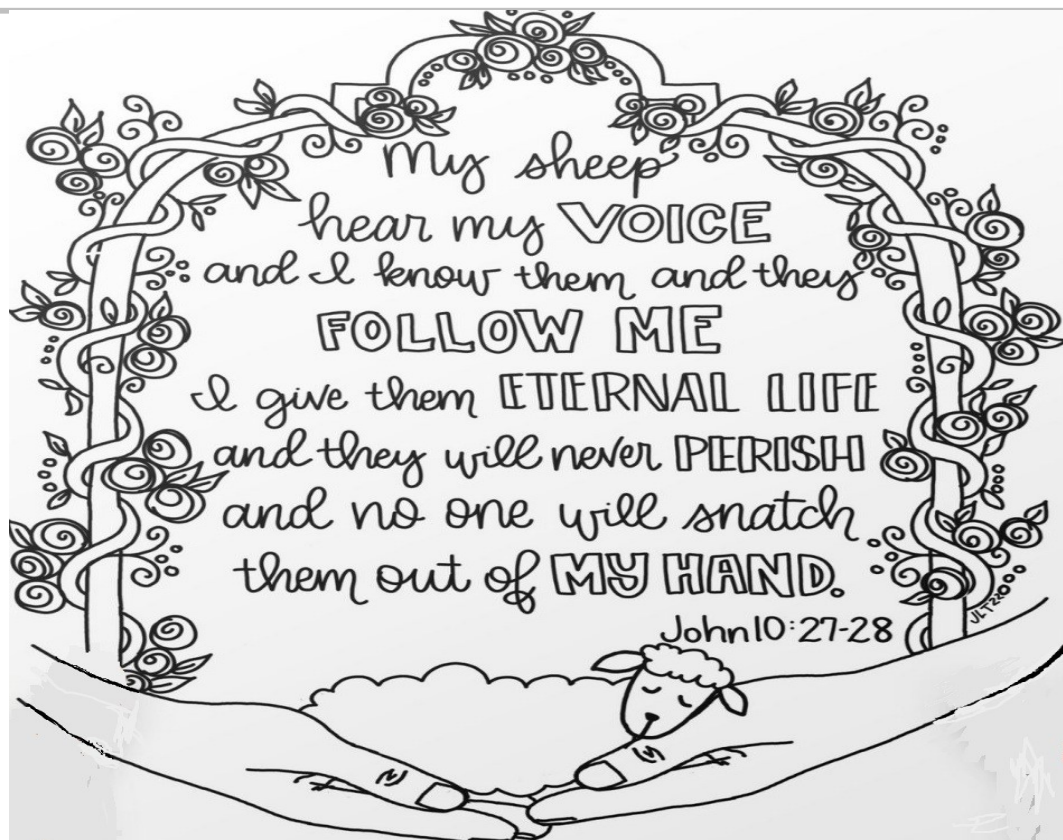 My sheep
hear my VOICE
and I know them and they
FOLLOW ME
I give them ETERNAL LIFE
and they will never PERISH
and no one will snatch
them out of MY HAND.
John 10:27-28
JLT22